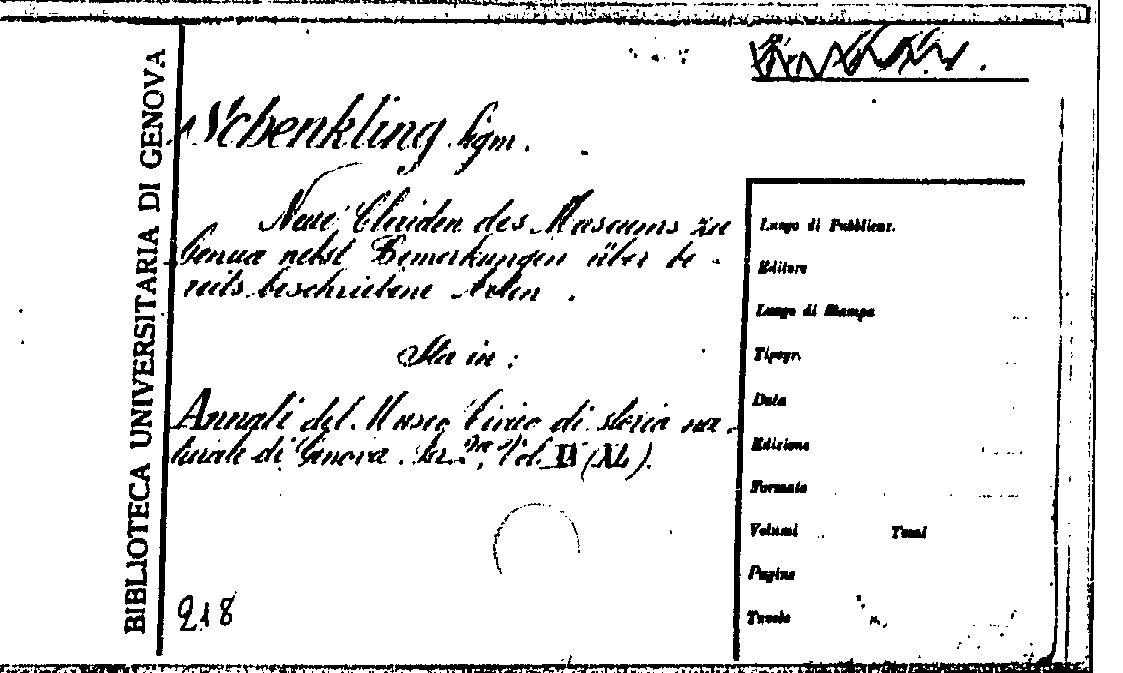 BIBLIOTECA UNIVERSITARIA DI GENOVA
Schenkling Sigm.
Neue Cleriden des Museums zu
Genua nebst Bemerkungen über be-
reits beschriebene Arten.
Sta in:
Annali del Museo Civico di storia na-
turale di Genova. Ser. 2a, Vol. (XL).
218
Luogo di Pubblicaz.
Editore
Luogo di Stampa
Tipogr.
Data
Edizione
Formato
Volumi Tomi
Pagine
Tavole